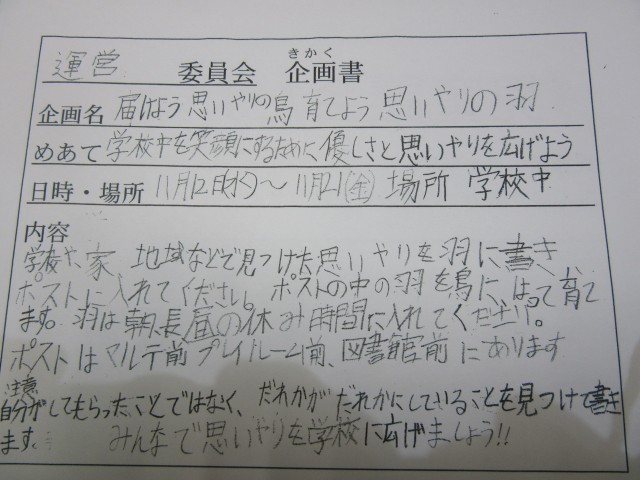 運営 委員会 企画書
きかく
企画名 届けよう思いやりの鳥 育てよう 思いやりの羽
めあて 学校中を笑顔にするために優しさと思いやりを広げよう
日時・場所 11月12日(水)〜11月21(金) 場所 学校中
内容
学校や、家 地域などで見つけた思いやりを羽に書き
ポストに入れてください。ポストの中の羽を鳥にはって育て
ます。羽は朝、長昼の休み時間に入れてください。
ポストはマルチ前プレイルーム前、図書館前にあります
注意
自分がしてもらったことではなく、だれかがだれかにしていることを見つけて書き
ます。 みんなで思いやりを学校に広げましょう!!